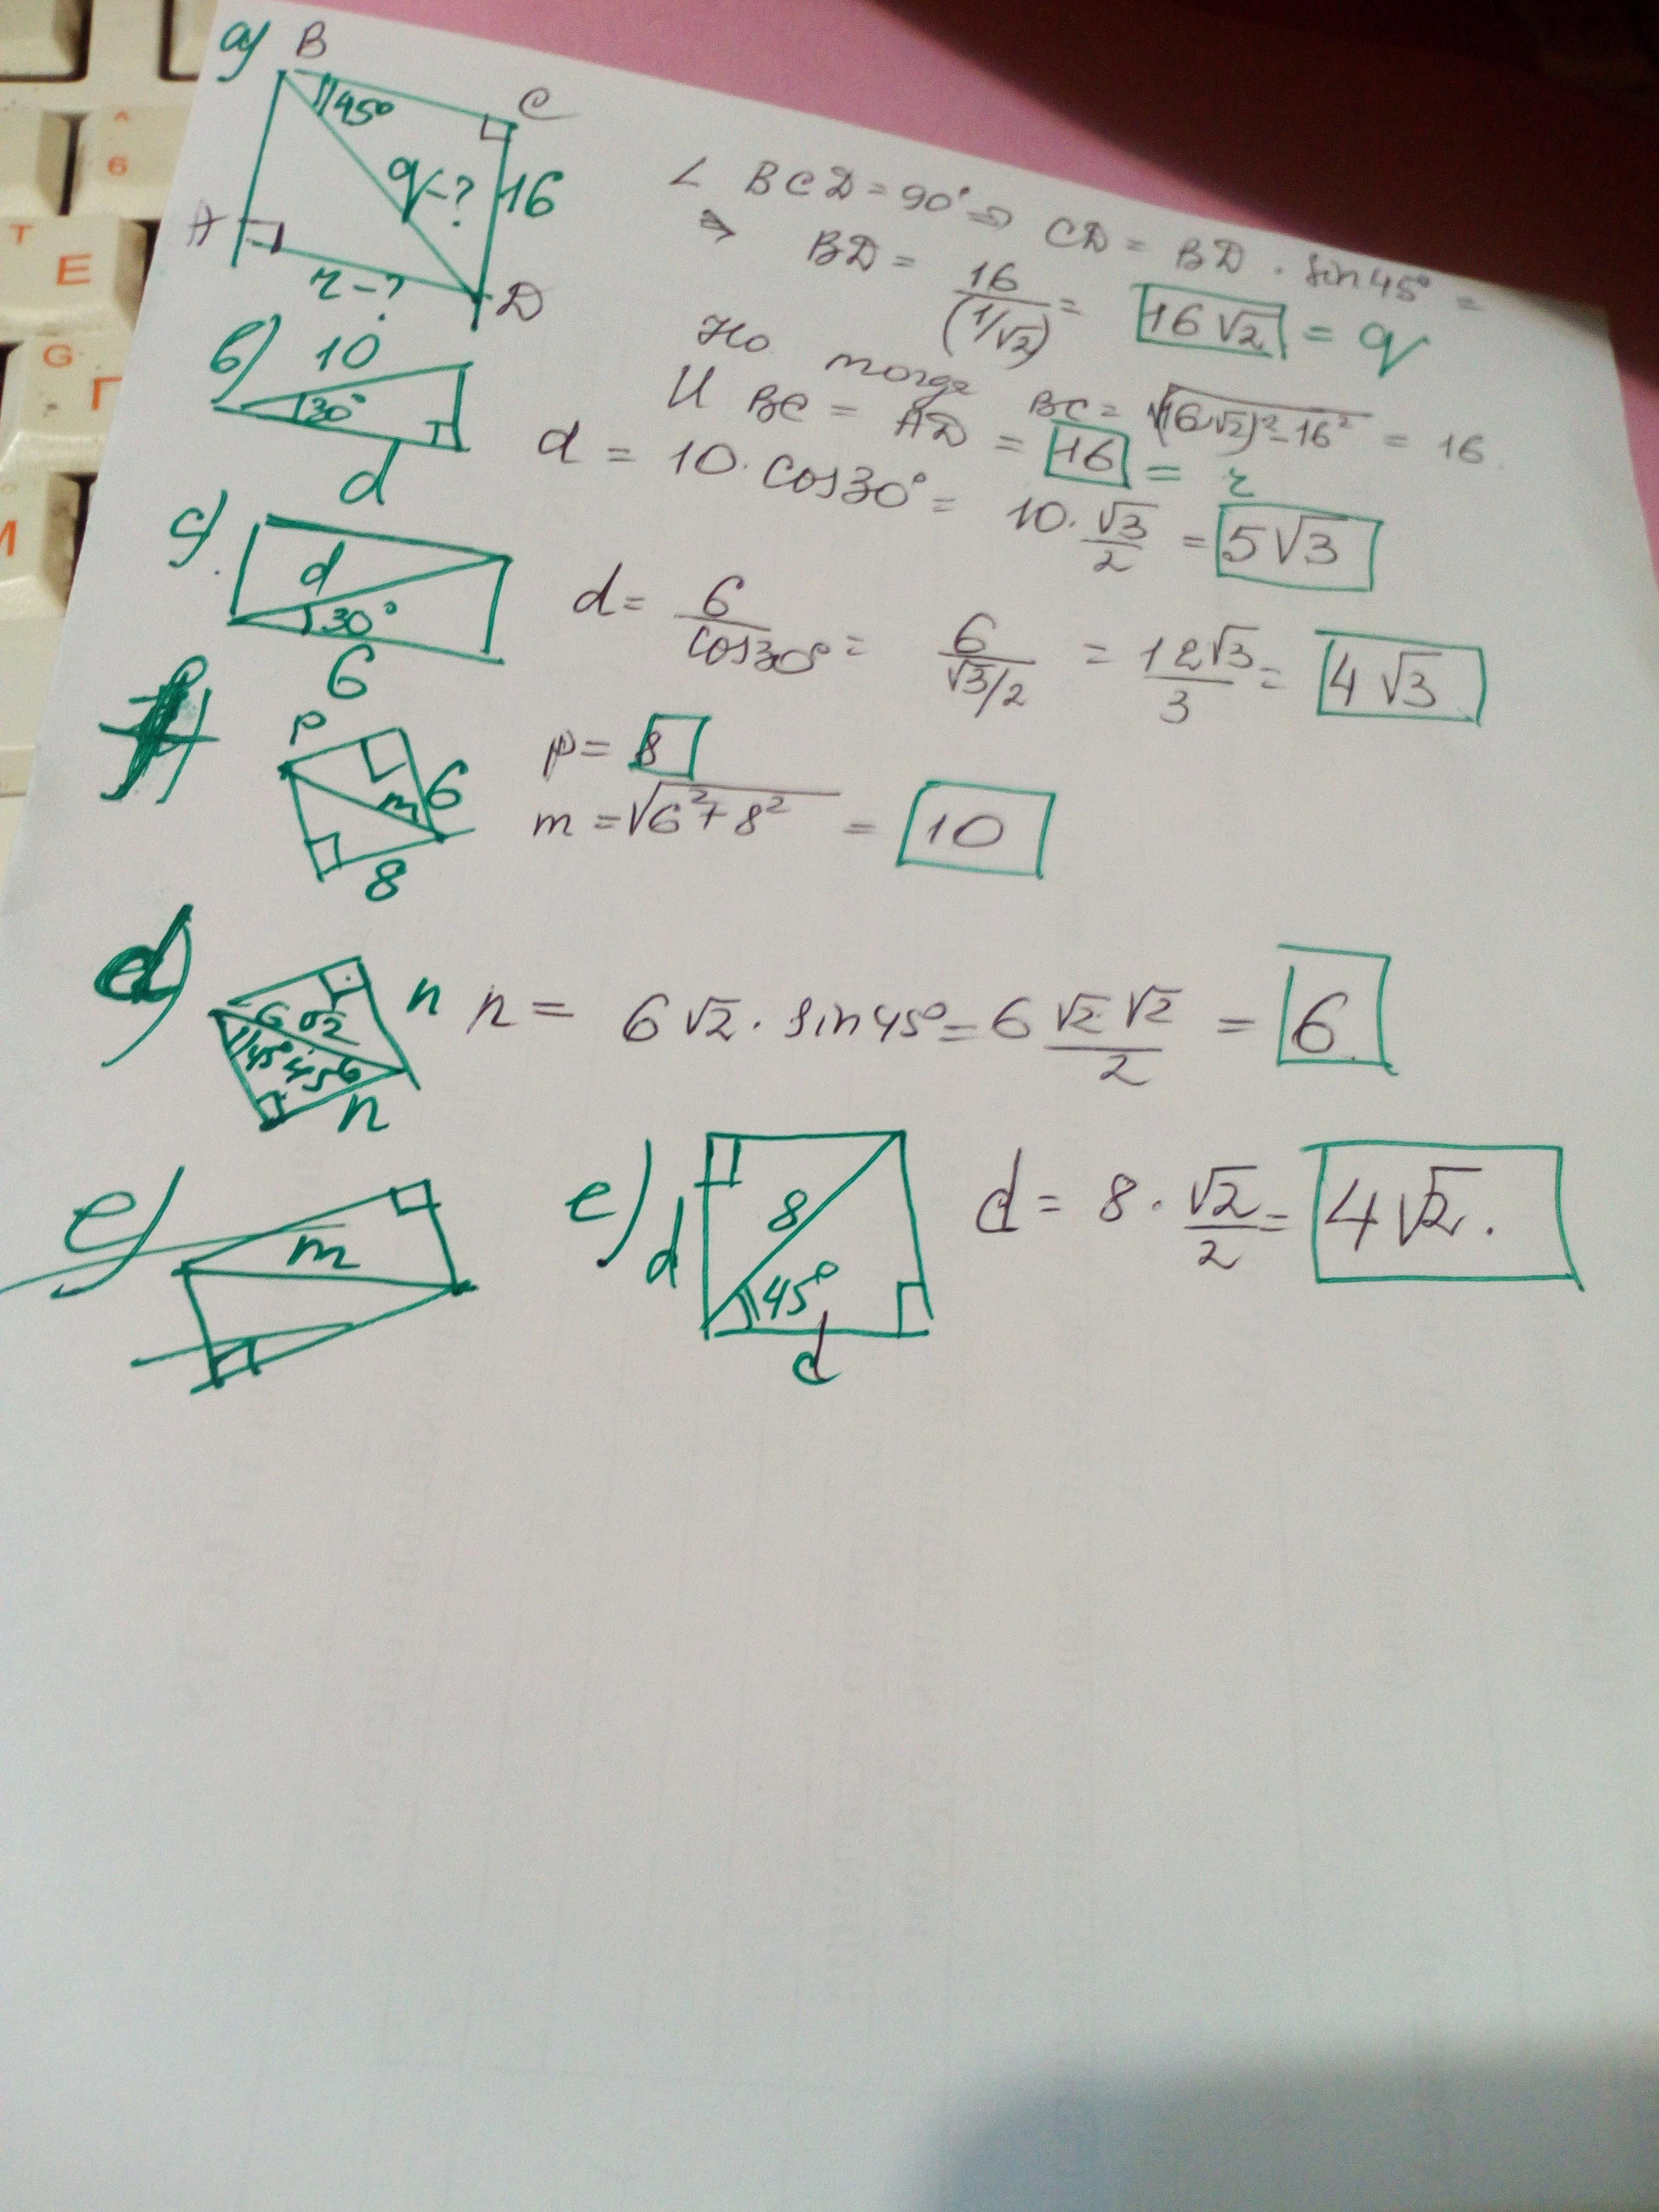 a) B
45°
C
q-?
16
A
r-?
D
∠ BCD = 90° ⇒ CD = BD · sin45° =
⇒ BD = 16/(1/√2) = 16√2 = q
Но тогда BC = √(16√2)²-16² = 16.
И BC = AD = 16 = r
б) 10
30°
d
d = 10 · cos30° = 10 · √3/2 = 5√3
c)
d
30°
6
d = 6/cos30° = 6/√3/2 = 12√3/3 = 4√3
P
6
m
8
p = 8
m = √6²+8² = 10
d)
n
6√2
45°
n
n = 6√2 · sin45° = 6 √2 √2/2 = 6
e)
m
e)
d
8
45°
d
d = 8 · √2/2 = 4√2.
T
E
^
6
G
П
M